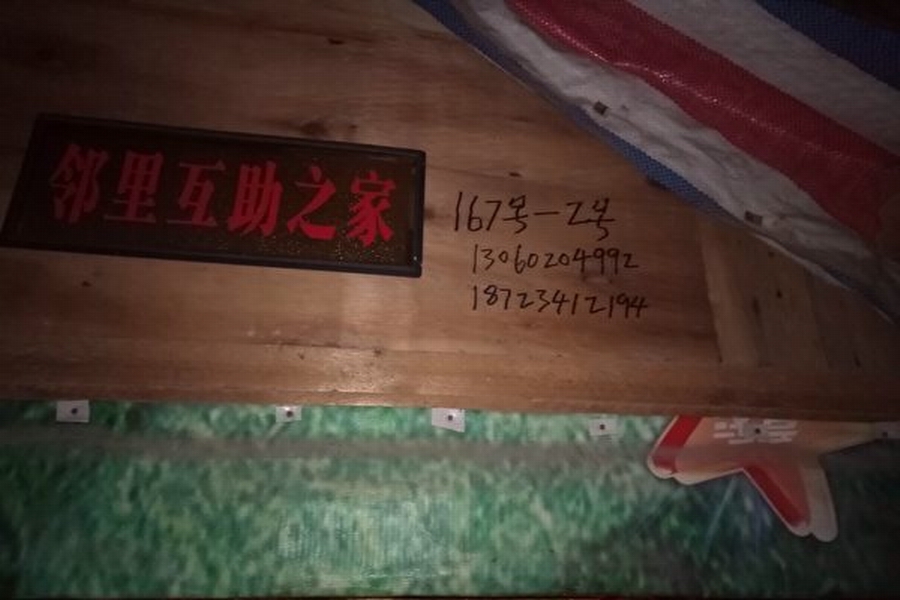 邻里互助之家
167号-2号
13060204992
18723412194